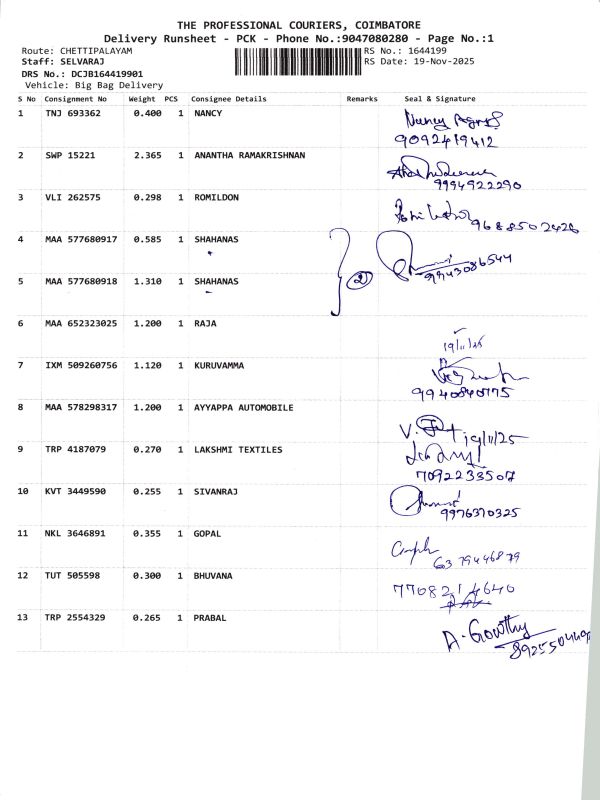 THE PROFESSIONAL COURIERS, COIMBATORE
Delivery Runsheet - PCK - Phone No.:9047080280 - Page No.:1
Route: CHETTIPALAYAM RS No.: 1644199
Staff: SELVARAJ RS Date: 19-Nov-2025
DRS No.: DCJB164419901
Vehicle: Big Bag Delivery
S No Consignment No Weight PCS Consignee Details Remarks Seal & Signature
1 TNJ 693362 0.400 1 NANCY Nancy
9092419412
2 SWP 15221 2.365 1 ANANTHA RAMAKRISHNAN
9994922290
3 VLI 262575 0.298 1 ROMILDON
9688502426
4 MAA 577680917 0.585 1 SHAHANAS
9943086544
2
5 MAA 577680918 1.310 1 SHAHANAS
6 MAA 652323025 1.200 1 RAJA
19/11/25
7 IXM 509260756 1.120 1 KURUVAMMA
9940840775
8 MAA 578298317 1.200 1 AYYAPPA AUTOMOBILE
V. 19/11/25
9 TRP 4187079 0.270 1 LAKSHMI TEXTILES
7092233507
10 KVT 3449590 0.255 1 SIVANRAJ
9976370325
11 NKL 3646891 0.355 1 GOPAL
6379446879
12 TUT 505598 0.300 1 BHUVANA
7708214640
13 TRP 2554329 0.265 1 PRABAL
A. Gowthy